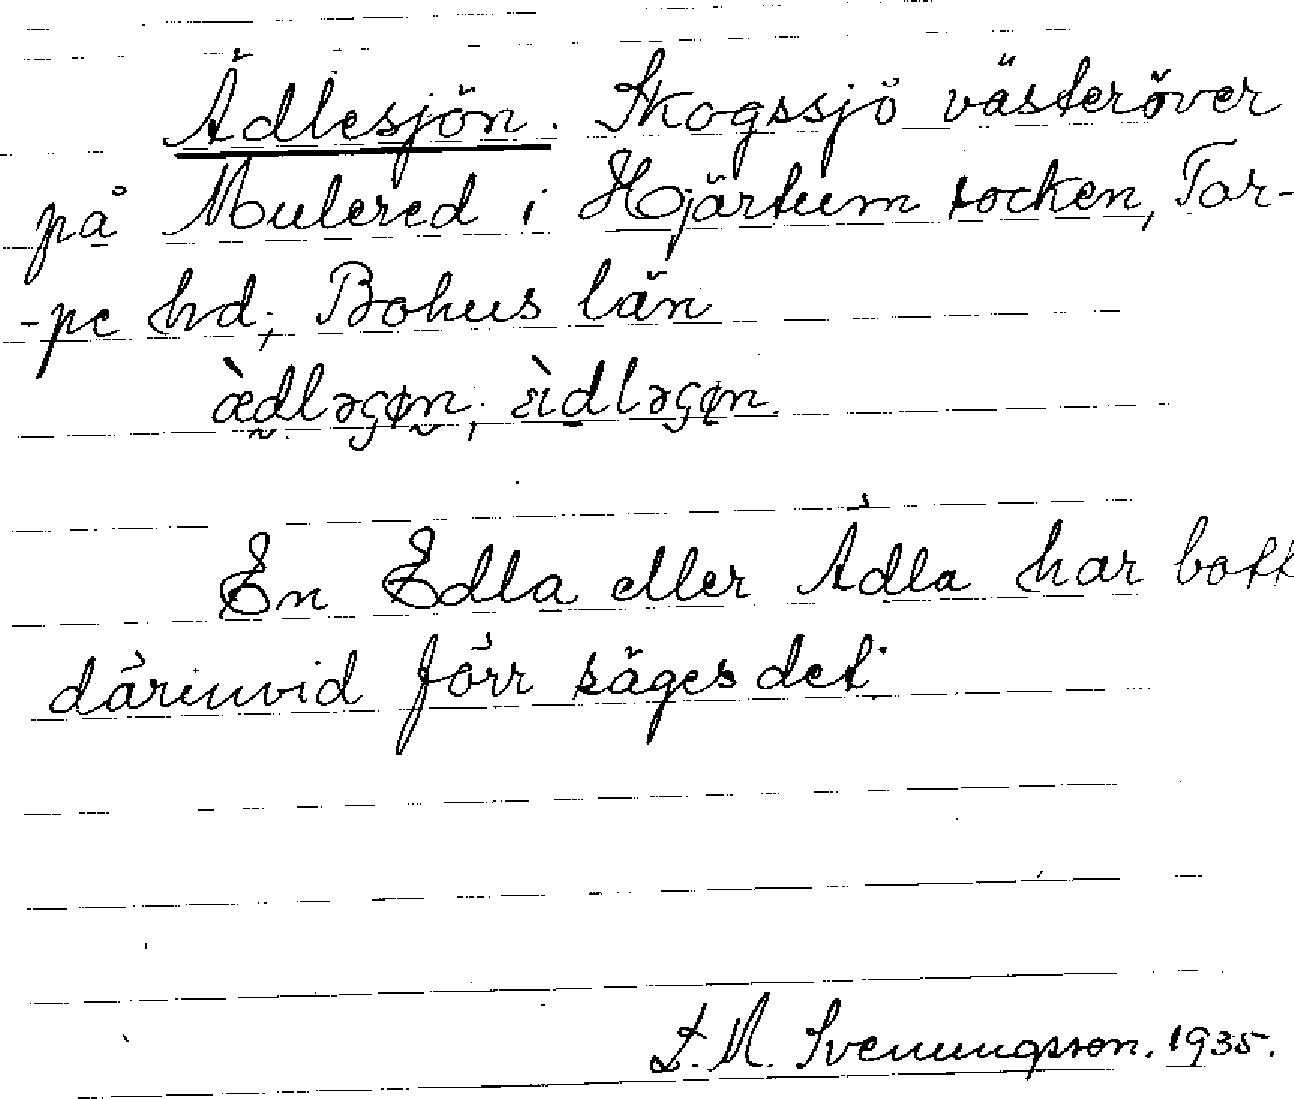 Ädlesjön. Skogssjö västeröver
på Mulered i Hjärtum socken, Tor-
-pe hd; Bohus län
æ̀dləʂøn; ὲdləʂøn.
En Edla eller Ädla har bott
därinvid förr säges det.
S. M. Svenungsson. 1935.